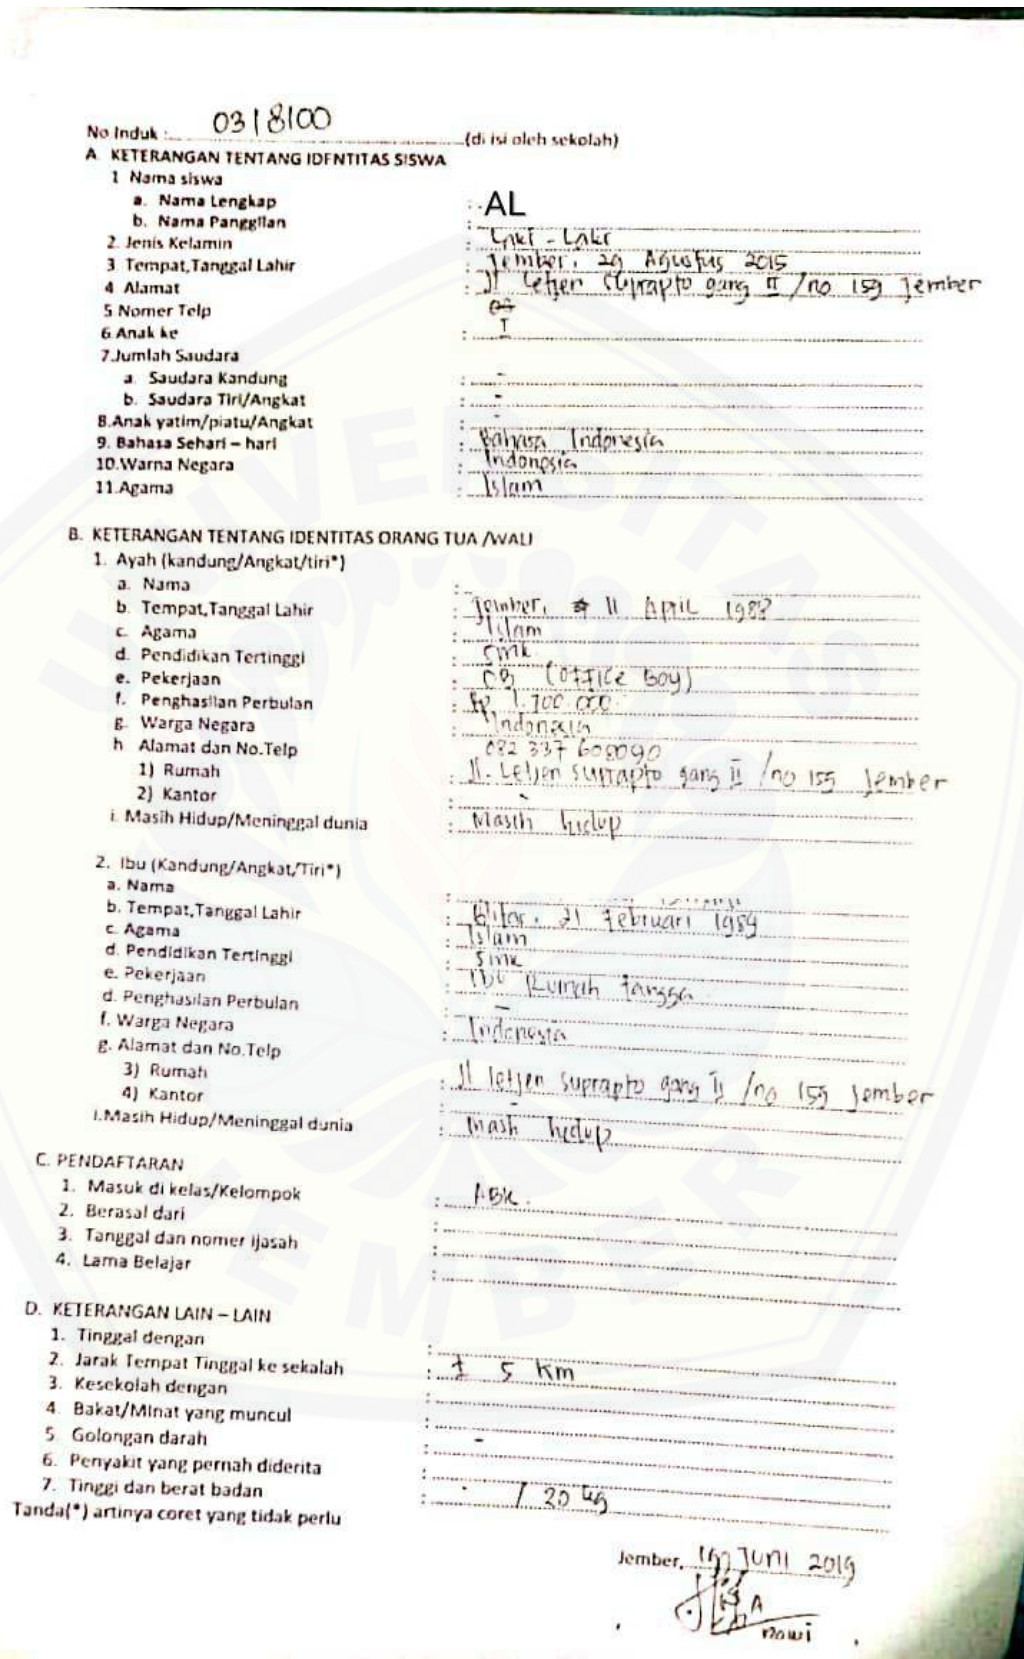 No Induk : 0318100 (di isi oleh sekolah)
A. KETERANGAN TENTANG IDENTITAS SISWA
1 Nama siswa
a. Nama Lengkap : AL
b. Nama Panggilan :
2. Jenis Kelamin : Laki - Laki
3 Tempat,Tanggal Lahir : Jember, 29 Agustus 2015
4 Alamat : Jl Letjen Suprapto gang II / no 159 Jember
5 Nomer Telp
6.Anak ke : I
7.Jumlah Saudara
a. Saudara Kandung : -
b. Saudara Tiri/Angkat : -
8.Anak yatim/piatu/Angkat : -
9. Bahasa Sehari – hari : Bahasa Indonesia
10.Warna Negara : Indonesia
11.Agama : Islam
B. KETERANGAN TENTANG IDENTITAS ORANG TUA /WALI
1. Ayah (kandung/Angkat/tiri*)
a. Nama :
b. Tempat,Tanggal Lahir : Jember, 11 April
c. Agama : Islam
d. Pendidikan Tertinggi : SMK
e. Pekerjaan : OB (Office Boy)
f. Penghasilan Perbulan : Rp 1.700.000
g. Warga Negara : Indonesia
h Alamat dan No.Telp 082 337 608090
1) Rumah : Jl. Letjen suprapto gang II / no 155 Jember
2) Kantor : -
i. Masih Hidup/Meninggal dunia : Masih hidup
2. Ibu (Kandung/Angkat/Tiri*)
a. Nama :
b. Tempat,Tanggal Lahir : Blitar, 21 Februari 1989
c. Agama : Islam
d. Pendidikan Tertinggi : SMK
e. Pekerjaan : Ibu Rumah tangga
d. Penghasilan Perbulan : -
f. Warga Negara : Indonesia
g. Alamat dan No.Telp
3) Rumah : Jl letjen suprapto gang II / no 159 Jember
4) Kantor : -
i.Masih Hidup/Meninggal dunia : masih hidup
C. PENDAFTARAN
1. Masuk di kelas/Kelompok : ABK.
2. Berasal dari :
3. Tanggal dan nomer ijasah :
4. Lama Belajar :
D. KETERANGAN LAIN – LAIN
1. Tinggal dengan :
2. Jarak Tempat Tinggal ke sekalah : ± 5 Km
3. Kesekolah dengan :
4. Bakat/Minat yang muncul :
5. Golongan darah : -
6. Penyakit yang pernah diderita :
7. Tinggi dan berat badan : / 20 kg
Tanda(*) artinya coret yang tidak perlu
Jember, Juni 2019
UNIVERSITAS
JEMBER